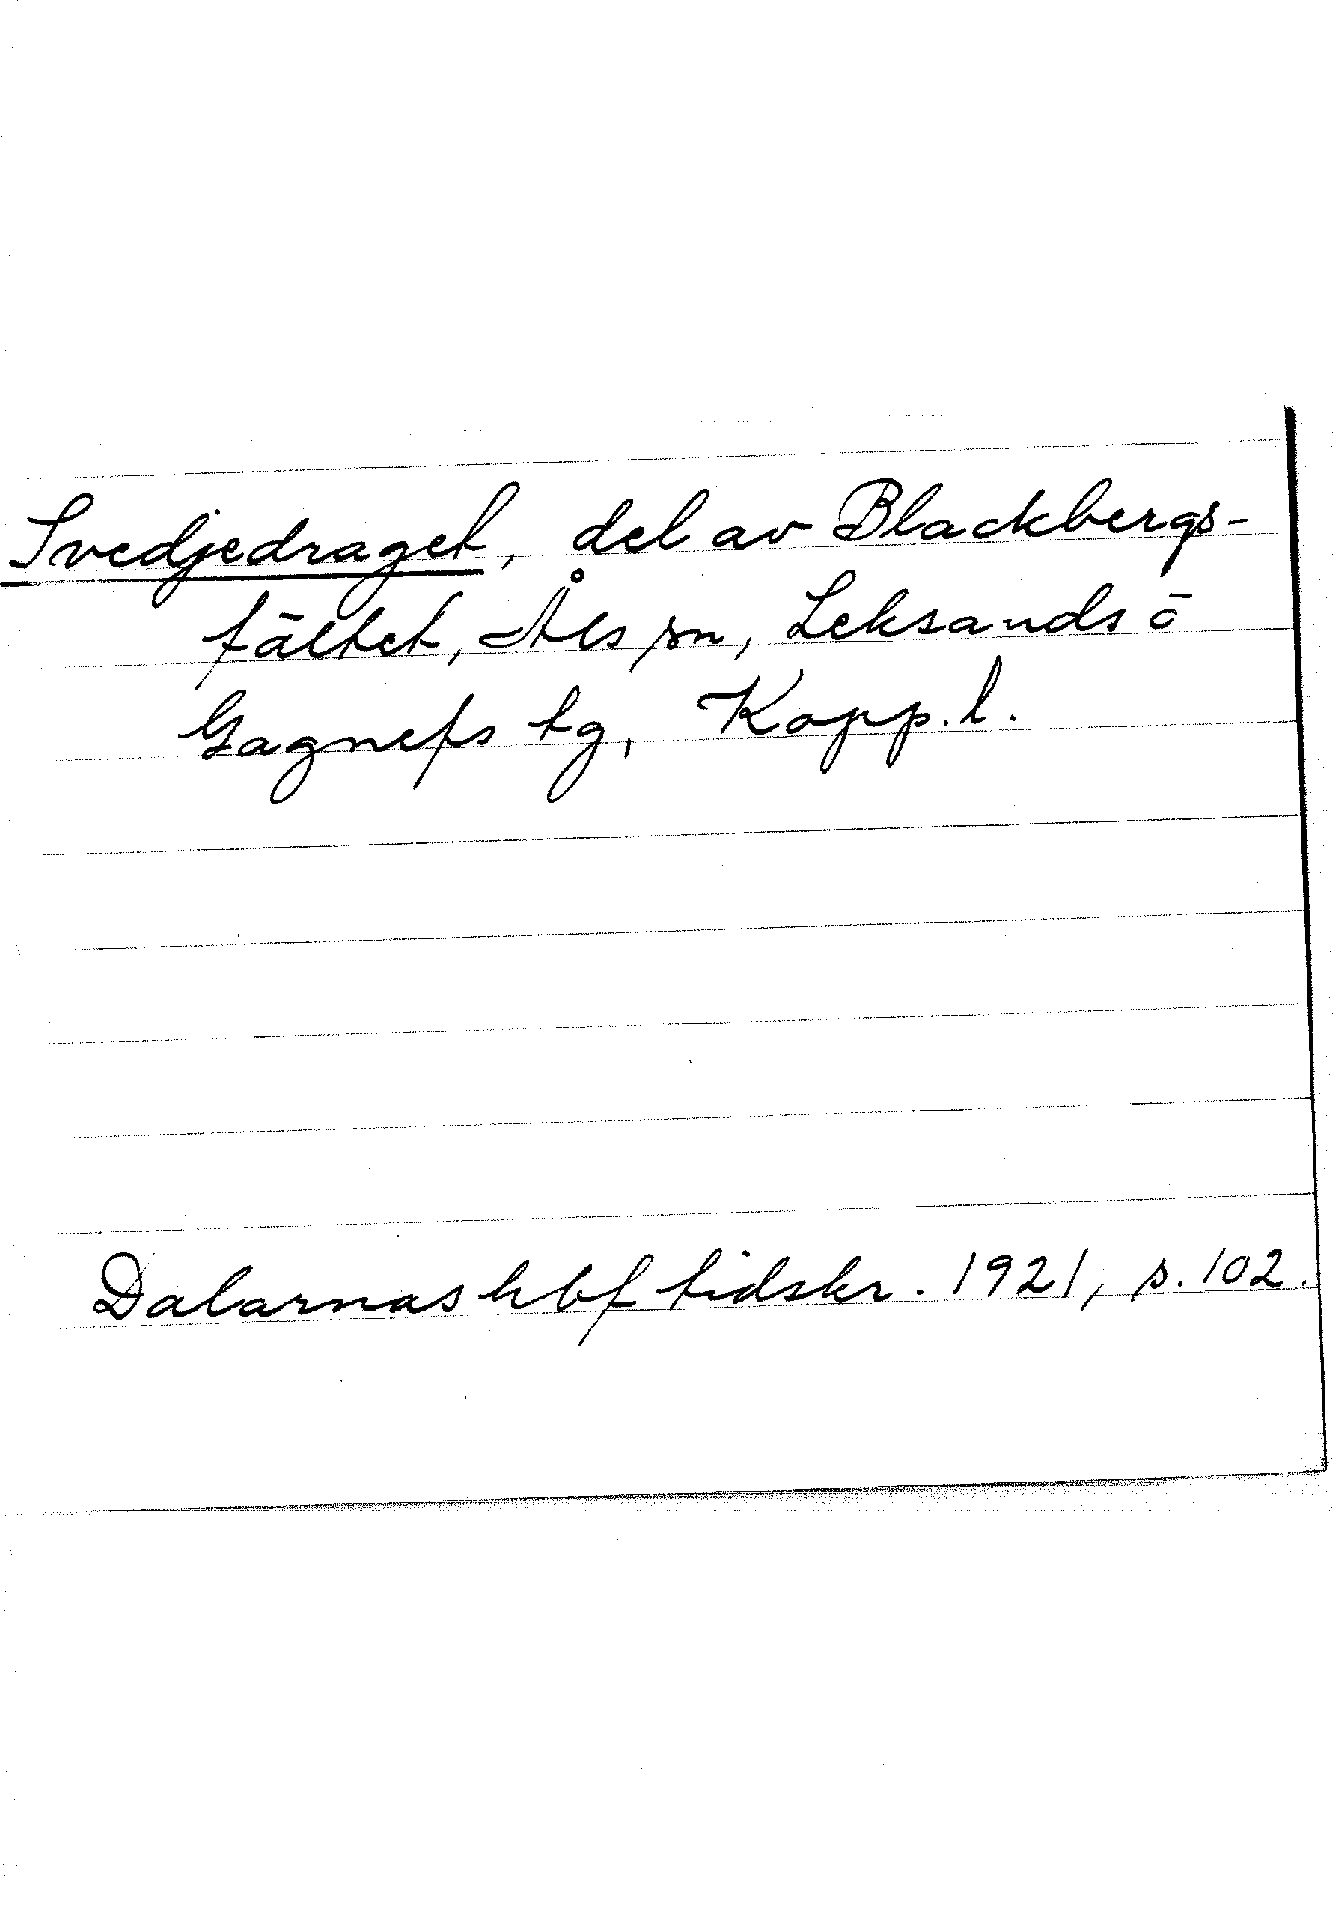 Svedjedraget, del av Blackbergs-
fältet, Åls sn, Leksands ō
Gagnefs tg, Kopp. l.
Dalarnas hbf tidskr. 1921, s. 102.